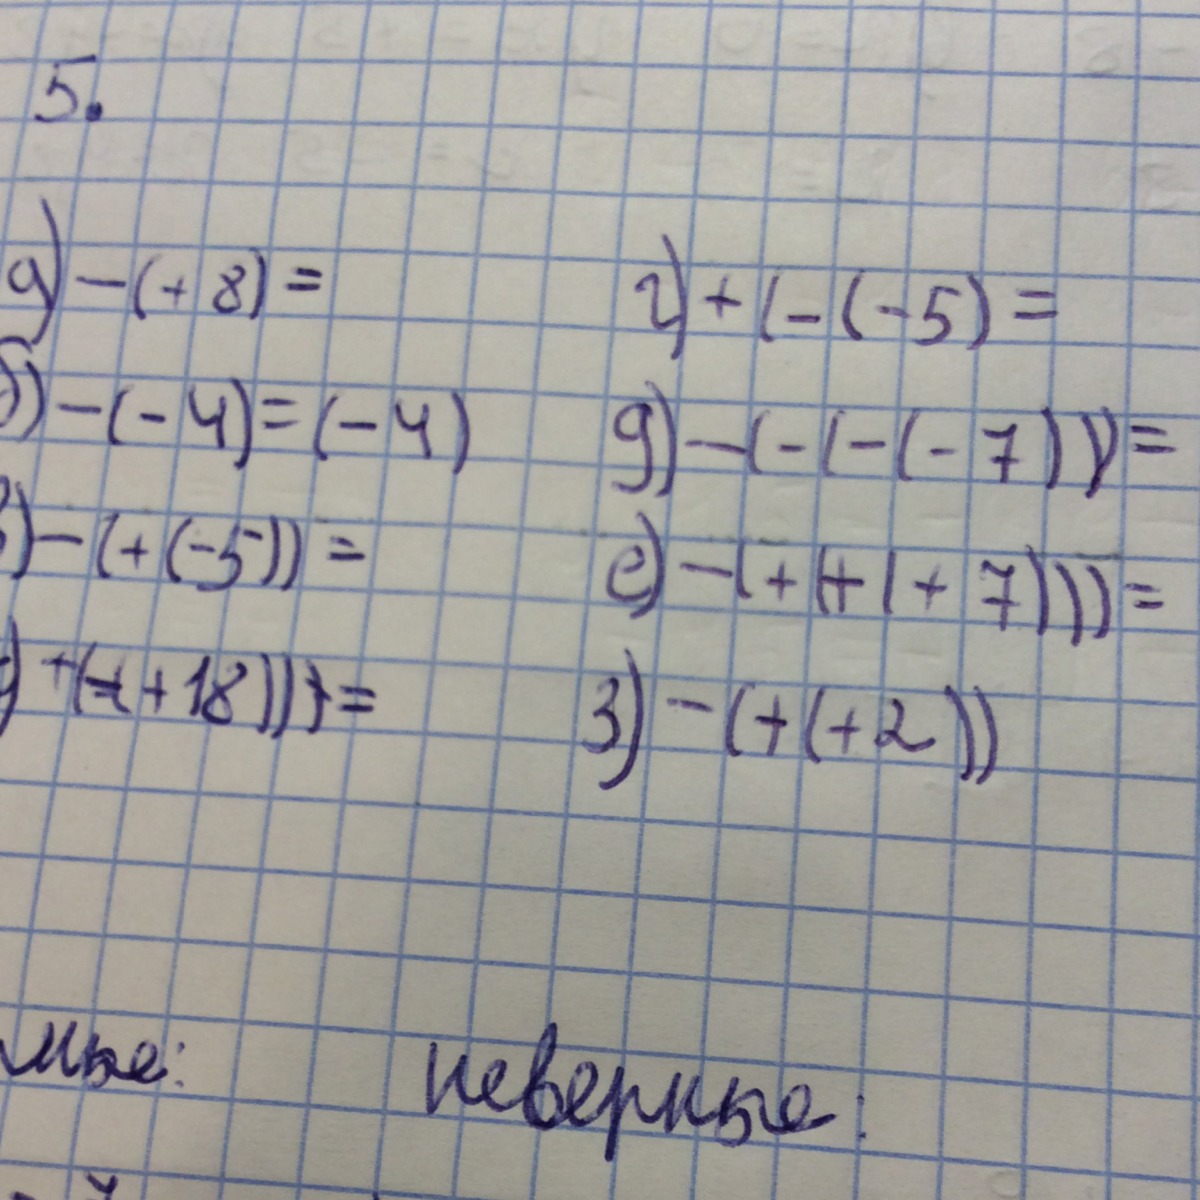 5.
а) -(+8)=
б) -(-4)=(-4)
в) -(+(-5))=
+(-(+18)))=
г) +(-(-5)=
д) -(-(-(-7))=
е) -(+(+(+7)))=
з) -(+(+2))
неверные: